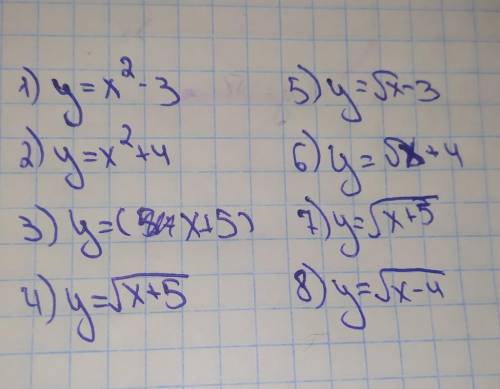 1) y = x² - 3
2) y = x² + 4
3) y = ( x + 5)
4) y = √(x + 5)
5) y = √x - 3
6) y = √x + 4
7) y = √(x + 5)
8) y = √(x - 4)